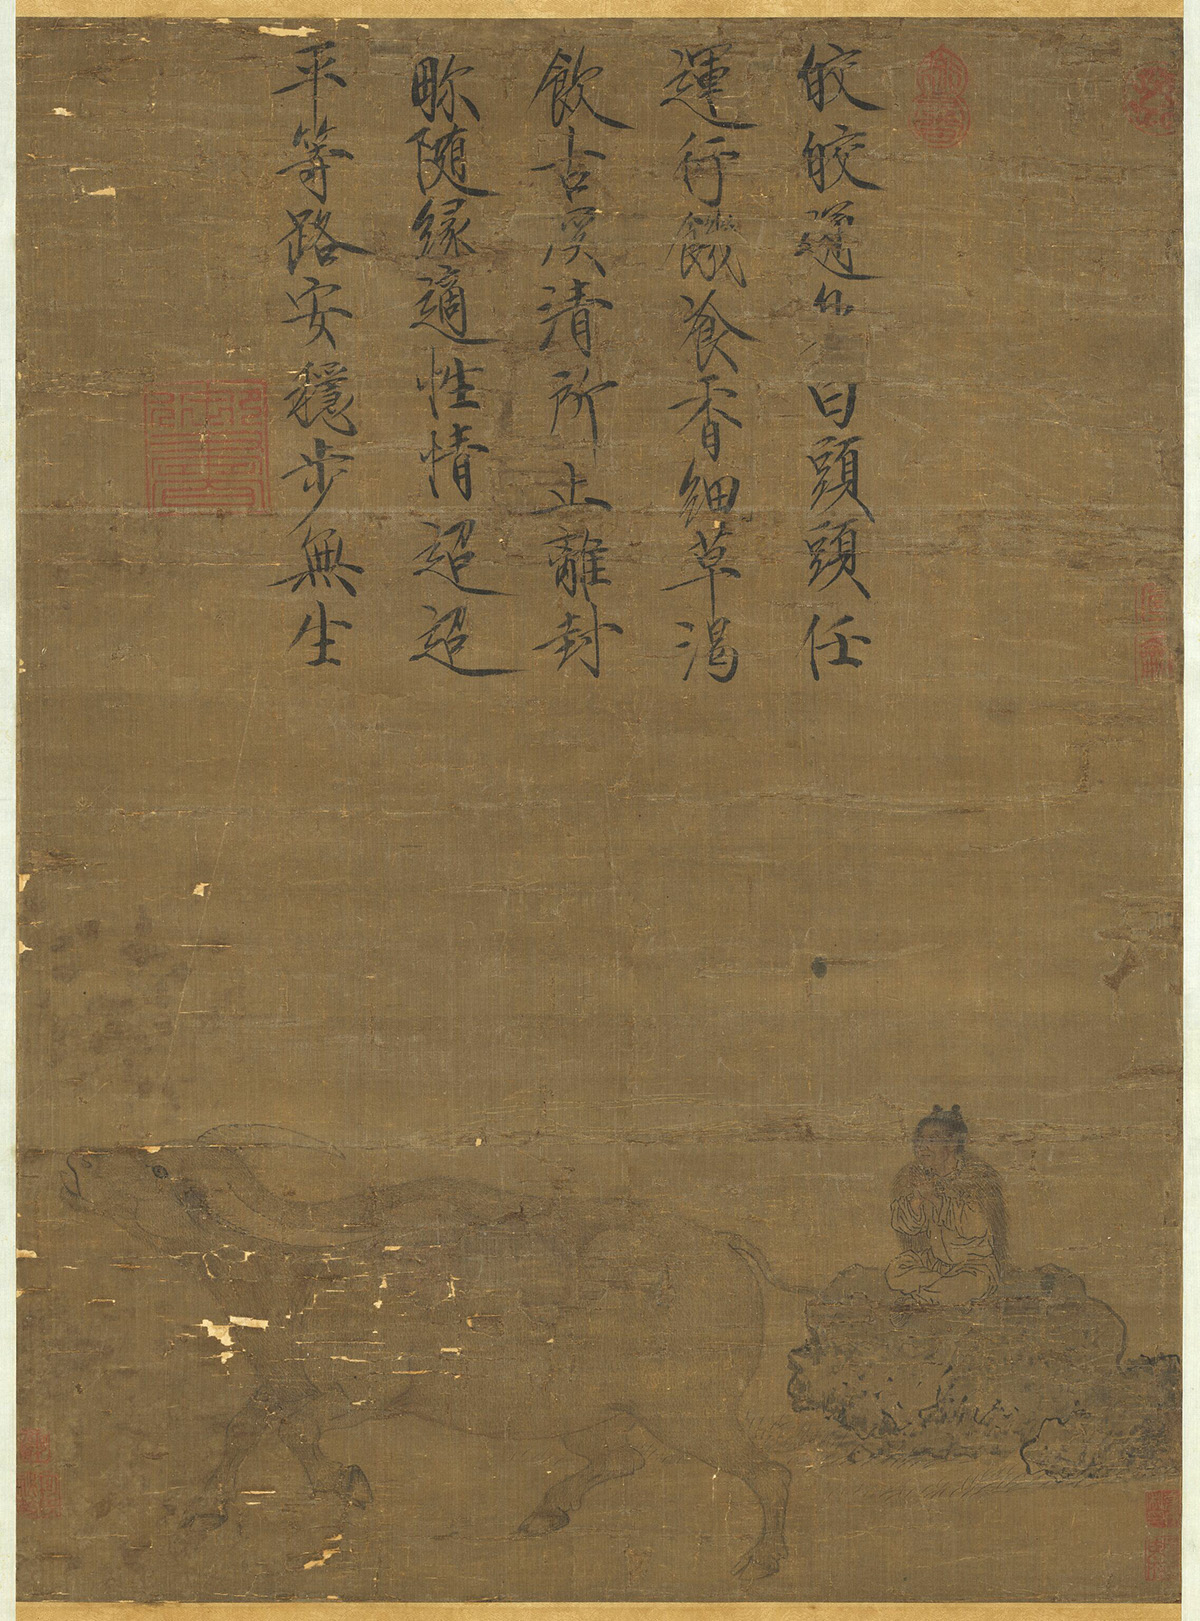 皎皎通日頭頭任
運行餓飡香細草渴
飲古溪清所止離封
畛隨緣適性情迢迢
平等路安穩步無生